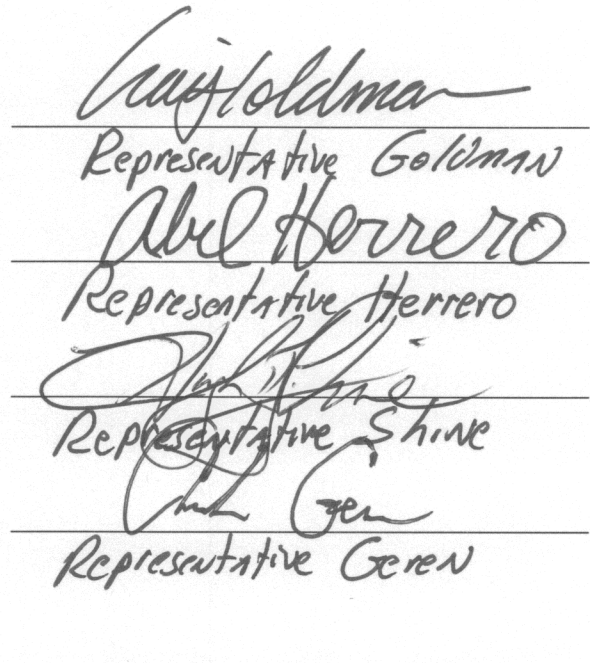 Craig Goldman
Representative Goldman
Abel Herrero
Representative Herrero
Representative Shine
Geren
Representative Geren